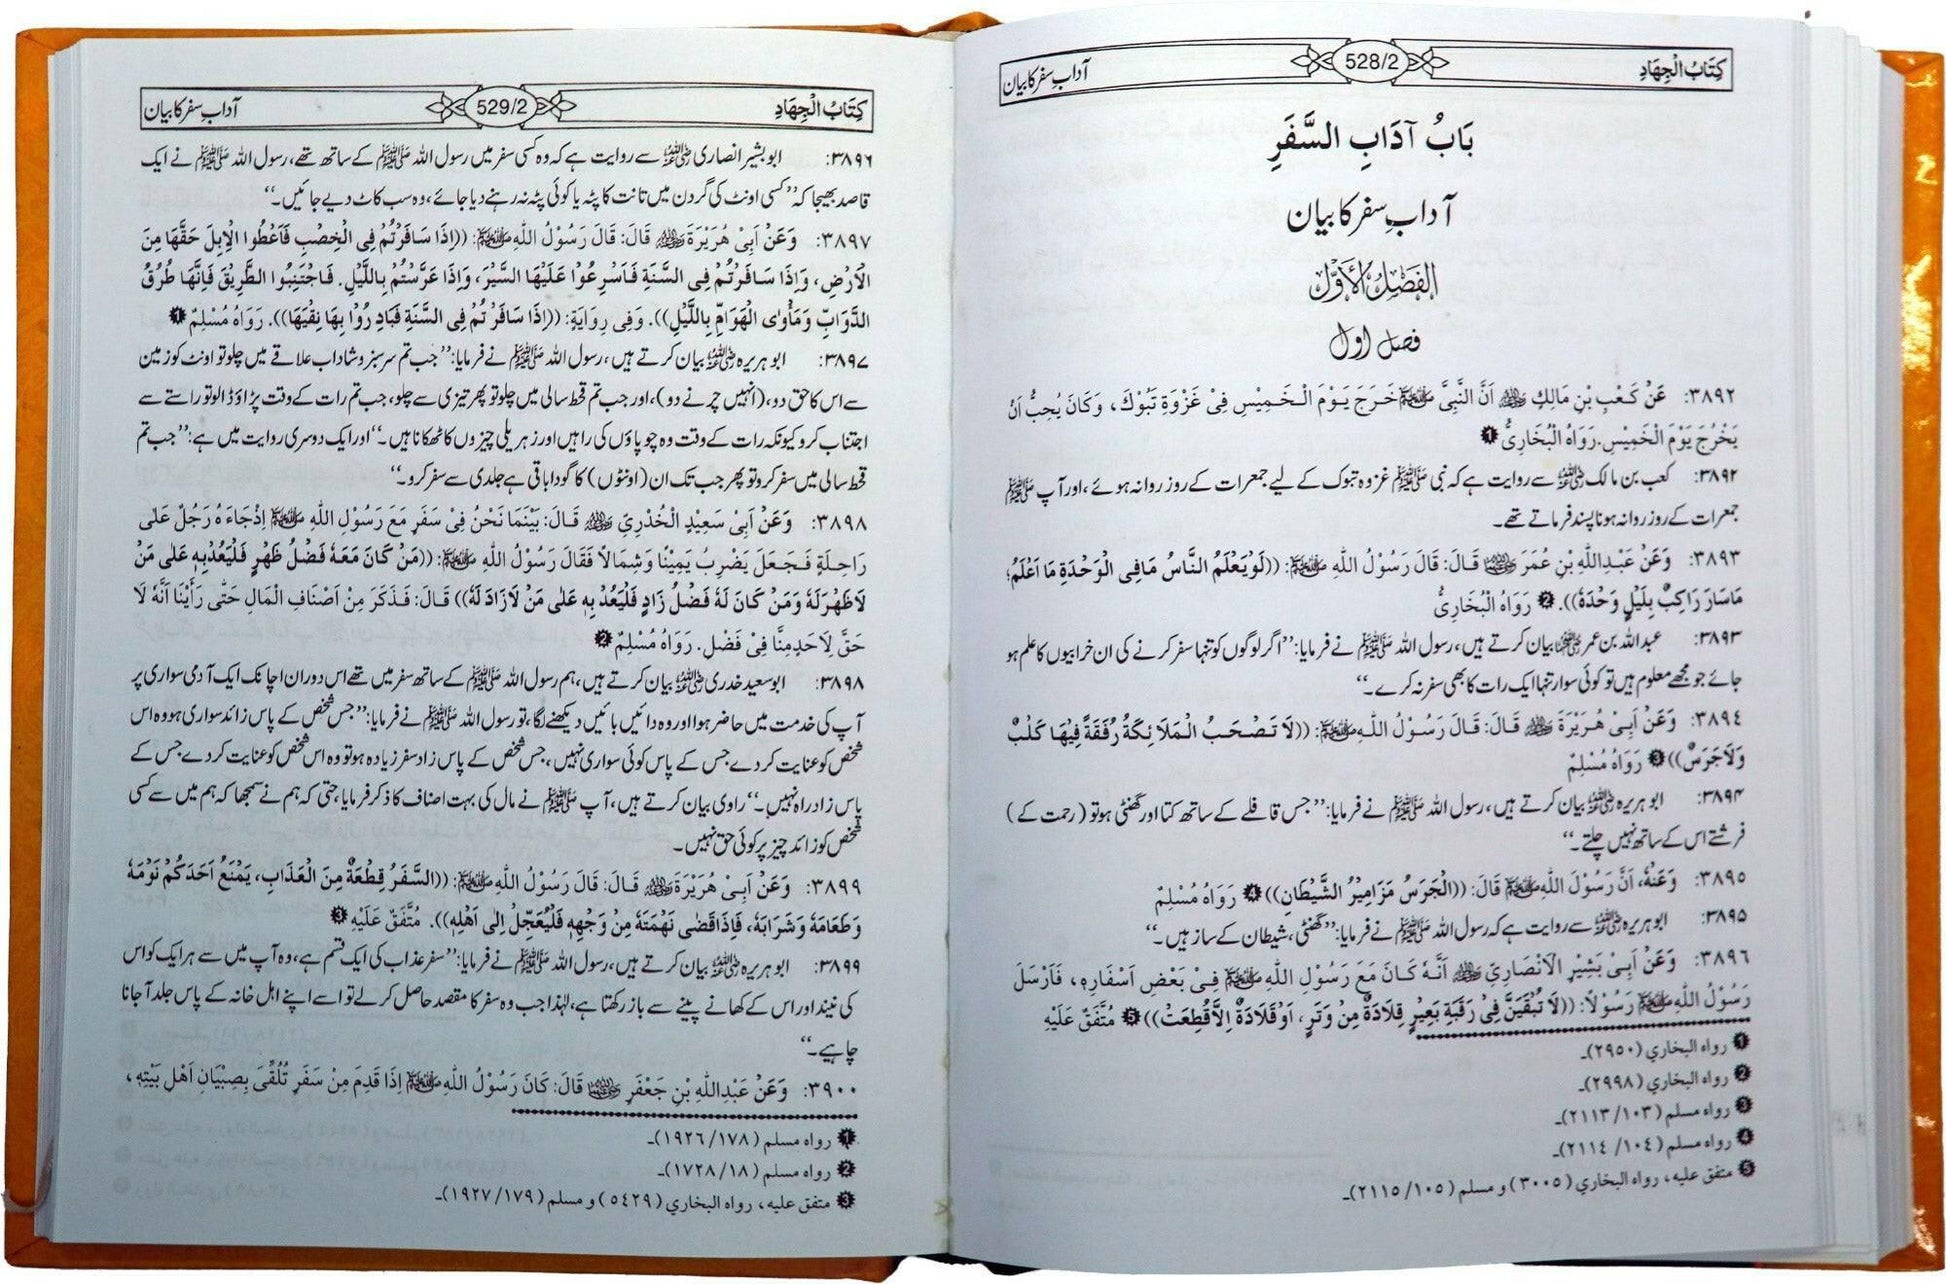 كِتَابُ الْجِهَادِ 528/2 آدابِ سفر کا بیان
بَابُ آدَابِ السَّفَرِ
آدابِ سفر کا بیان
الفَصْلُ الْأَوَّلُ
فصل اول
٣٨٩٢: عَنْ كَعْبِ بْنِ مَالِكٍ ؓ اَنَّ النَّبِيَّ ﷺ خَرَجَ يَوْمَ الْخَمِيْسِ فِيْ غَزْوَةِ تَبُوْكَ، وَكَانَ يُحِبُّ اَنْ
يَخْرُجَ يَوْمَ الْخَمِيْسِ. رَوَاهُ الْبُخَارِيُّ ❶
٣٨٩٢: کعب بن مالک ؓ سے روایت ہے کہ نبی ﷺ غزوہ تبوک کے لیے جمعرات کے روز روانہ ہوئے، اور آپ ﷺ
جمعرات کے روز روانہ ہونا پسند فرماتے تھے۔
٣٨٩٣: وَعَنْ عَبْدِاللّٰهِ بْنِ عُمَرَ ؓ قَالَ: قَالَ رَسُوْلُ اللّٰهِ ﷺ: ((لَوْ يَعْلَمُ النَّاسُ مَافِي الْوَحْدَةِ مَا اَعْلَمُ؛
مَاسَارَ رَاكِبٌ بِلَيْلٍ وَحْدَهٗ)). ❷ رَوَاهُ الْبُخَارِيُّ
٣٨٩٣: عبداللہ بن عمر ؓ بیان کرتے ہیں، رسول اللہ ﷺ نے فرمایا: ’’اگر لوگوں کو تنہا سفر کرنے کی ان خرابیوں کا علم ہو
جائے جو مجھے معلوم ہیں تو کوئی سوار تنہا ایک رات کا بھی سفر نہ کرے۔‘‘
٣٨٩٤: وَعَنْ اَبِيْ هُرَيْرَةَ ؓ قَالَ: قَالَ رَسُوْلُ اللّٰهِ ﷺ: ((لَا تَصْحَبُ الْمَلَائِكَةُ رُفْقَةً فِيْهَا كَلْبٌ
وَلَاجَرَسٌ)) ❸ رَوَاهُ مُسْلِمٌ
٣٨٩٤: ابو ہریرہ ؓ بیان کرتے ہیں، رسول اللہ ﷺ نے فرمایا: ’’جس قافلے کے ساتھ کتا اور گھنٹی ہو تو (رحمت کے)
فرشتے اس کے ساتھ نہیں چلتے۔‘‘
٣٨٩٥: وَعَنْهُ، اَنَّ رَسُوْلَ اللّٰهِ ﷺ قَالَ: ((الْجَرَسُ مَزَامِيْرُ الشَّيْطَانِ)) ❹ رَوَاهُ مُسْلِمٌ
٣٨٩٥: ابو ہریرہ ؓ سے روایت ہے کہ رسول اللہ ﷺ نے فرمایا: ’’گھنٹی، شیطان کے ساز ہیں۔‘‘
٣٨٩٦: وَعَنْ اَبِيْ بَشِيْرٍ الْاَنْصَارِيِّ ؓ اَنَّهٗ كَانَ مَعَ رَسُوْلِ اللّٰهِ ﷺ فِيْ بَعْضِ اَسْفَارِهٖ، فَاَرْسَلَ
رَسُوْلُ اللّٰهِ ﷺ رَسُوْلًا: ((لَا تُبْقَيَنَّ فِيْ رَقَبَةِ بَعِيْرٍ قِلَادَةٌ مِنْ وَتَرٍ، اَوْ قِلَادَةٌ اِلَّا قُطِعَتْ)) ❺ مُتَّفَقٌ عَلَيْهِ
❶ رواه البخاري (٢٩٥٠)۔
❷ رواه البخاري (٢٩٩٨)۔
❸ رواه مسلم (١٠٣/٢١١٣)۔
❹ رواه مسلم (١٠٤/٢١١٤)۔
❺ متفق عليه، رواه البخاري (٣٠٠٥) و مسلم (١٠٥/٢١١٥)۔
كِتَابُ الْجِهَادِ 529/2 آدابِ سفر کا بیان
٣٨٩٦: ابو بشیر انصاری ؓ سے روایت ہے کہ وہ کسی سفر میں رسول اللہ ﷺ کے ساتھ تھے، رسول اللہ ﷺ نے ایک
قاصد بھیجا کہ ’’کسی اونٹ کی گردن میں تانت کا پٹہ یا کوئی پٹہ نہ رہنے دیا جائے، وہ سب کاٹ دیے جائیں۔‘‘
٣٨٩٧: وَعَنْ اَبِيْ هُرَيْرَةَ ؓ قَالَ: قَالَ رَسُوْلُ اللّٰهِ ﷺ: ((اِذَا سَافَرْتُمْ فِي الْخِصْبِ فَاَعْطُوا الْاِبِلَ حَقَّهَا مِنَ
الْاَرْضِ، وَاِذَا سَافَرْتُمْ فِي السَّنَةِ فَاَسْرِعُوْا عَلَيْهَا السَّيْرَ، وَاِذَا عَرَّسْتُمْ بِاللَّيْلِ. فَاجْتَنِبُوا الطَّرِيْقَ فَاِنَّهَا طُرُقُ
الدَّوَابِّ وَمَأْوٰى الْهَوَامِّ بِاللَّيْلِ)). وَفِيْ رِوَايَةٍ: ((اِذَا سَافَرْتُمْ فِي السَّنَةِ فَبَادِرُوْا بِهَا نِقْيَهَا)). رَوَاهُ مُسْلِمٌ ❶
٣٨٩٧: ابو ہریرہ ؓ بیان کرتے ہیں، رسول اللہ ﷺ نے فرمایا: ’’جب تم سرسبز و شاداب علاقے میں چلو تو اونٹ کو زمین
سے اس کا حق دو، (انہیں چرنے دو)، اور جب تم قحط سالی میں چلو تو پھر تیزی سے چلو، جب تم رات کے وقت پڑاؤ ڈالو تو راستے سے
اجتناب کرو کیونکہ رات کے وقت وہ چوپاؤں کی راہیں اور زہریلی چیزوں کا ٹھکانا ہیں۔‘‘ اور ایک دوسری روایت میں ہے: ’’جب تم
قحط سالی میں سفر کرو تو پھر جب تک ان (اونٹوں) کا گودا باقی ہے جلدی سے سفر کرو۔‘‘
٣٨٩٨: وَعَنْ اَبِيْ سَعِيْدٍ الْخُدْرِيِّ ؓ قَالَ: بَيْنَمَا نَحْنُ فِيْ سَفَرٍ مَعَ رَسُوْلِ اللّٰهِ ﷺ اِذْ جَاءَهٗ رَجُلٌ عَلٰى
رَاحِلَةٍ فَجَعَلَ يَضْرِبُ يَمِيْنًا وَشِمَالًا فَقَالَ رَسُوْلُ اللّٰهِ ﷺ: ((مَنْ كَانَ مَعَهٗ فَضْلُ ظَهْرٍ فَلْيَعُدْ بِهٖ عَلٰى مَنْ
لَاظَهْرَلَهٗ وَمَنْ كَانَ لَهٗ فَضْلُ زَادٍ فَلْيَعُدْ بِهٖ عَلٰى مَنْ لَازَادَ لَهٗ)) قَالَ: فَذَكَرَ مِنْ اَصْنَافِ الْمَالِ حَتّٰى رَأَيْنَا اَنَّهٗ لَا
حَقَّ لِاَحَدٍ مِنَّا فِيْ فَضْلٍ. رَوَاهُ مُسْلِمٌ ❷
٣٨٩٨: ابو سعید خدری ؓ بیان کرتے ہیں، ہم رسول اللہ ﷺ کے ساتھ سفر میں تھے اس دوران اچانک ایک آدمی سواری پر
آپ کی خدمت میں حاضر ہوا اور وہ دائیں بائیں دیکھنے لگا، تو رسول اللہ ﷺ نے فرمایا: ’’جس شخص کے پاس زائد سواری ہو وہ اس
شخص کو عنایت کر دے جس کے پاس کوئی سواری نہیں، جس شخص کے پاس زاد سفر زیادہ ہو تو وہ اس شخص کو عنایت کر دے جس کے
پاس زاد راہ نہیں۔‘‘ راوی بیان کرتے ہیں، آپ ﷺ نے مال کی بہت اصناف کا ذکر فرمایا، حتیٰ کہ ہم نے سمجھا کہ ہم میں سے کسی
شخص کو زائد چیز پر کوئی حق نہیں۔
٣٨٩٩: وَعَنْ اَبِيْ هُرَيْرَةَ ؓ قَالَ: قَالَ رَسُوْلُ اللّٰهِ ﷺ: ((السَّفَرُ قِطْعَةٌ مِنَ الْعَذَابِ، يَمْنَعُ اَحَدَكُمْ نَوْمَهٗ
وَطَعَامَهٗ وَشَرَابَهٗ، فَاِذَا قَضٰى نَهْمَتَهٗ مِنْ وَجْهِهٖ فَلْيُعَجِّلْ اِلٰى اَهْلِهٖ)). مُتَّفَقٌ عَلَيْهِ ❸
٣٨٩٩: ابو ہریرہ ؓ بیان کرتے ہیں، رسول اللہ ﷺ نے فرمایا: ’’سفر عذاب کی ایک قسم ہے، وہ آپ میں سے ہر ایک کو اس
کی نیند اور اس کے کھانے پینے سے باز رکھتا ہے، لہٰذا جب وہ سفر کا مقصد حاصل کر لے تو اسے اپنے اہل خانہ کے پاس جلد آ جانا
چاہیے۔‘‘
٣٩٠٠: وَعَنْ عَبْدِاللّٰهِ بْنِ جَعْفَرٍ ؓ قَالَ: كَانَ رَسُوْلُ اللّٰهِ ﷺ اِذَا قَدِمَ مِنْ سَفَرٍ تُلُقِّيَ بِصِبْيَانِ اَهْلِ بَيْتِهٖ،
❶ رواه مسلم (١٧٨/١٩٢٦)۔
❷ رواه مسلم (١٨/١٧٢٨)۔
❸ متفق عليه، رواه البخاري (٥٤٢٩) و مسلم (١٧٩/١٩٢٧)۔